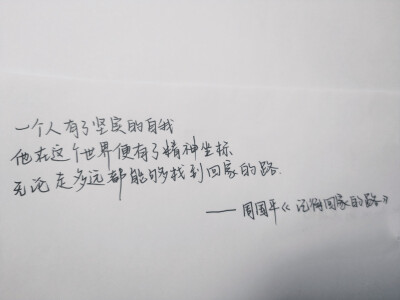 一个人有了坚实的自我
他在这个世界便有了精神坐标
无论走多远都能够找到回家的路.
——周国平《记得回家的路》